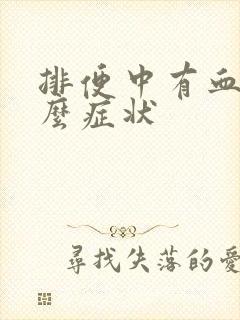 排便中有血
麼症狀
尋找失落的愛